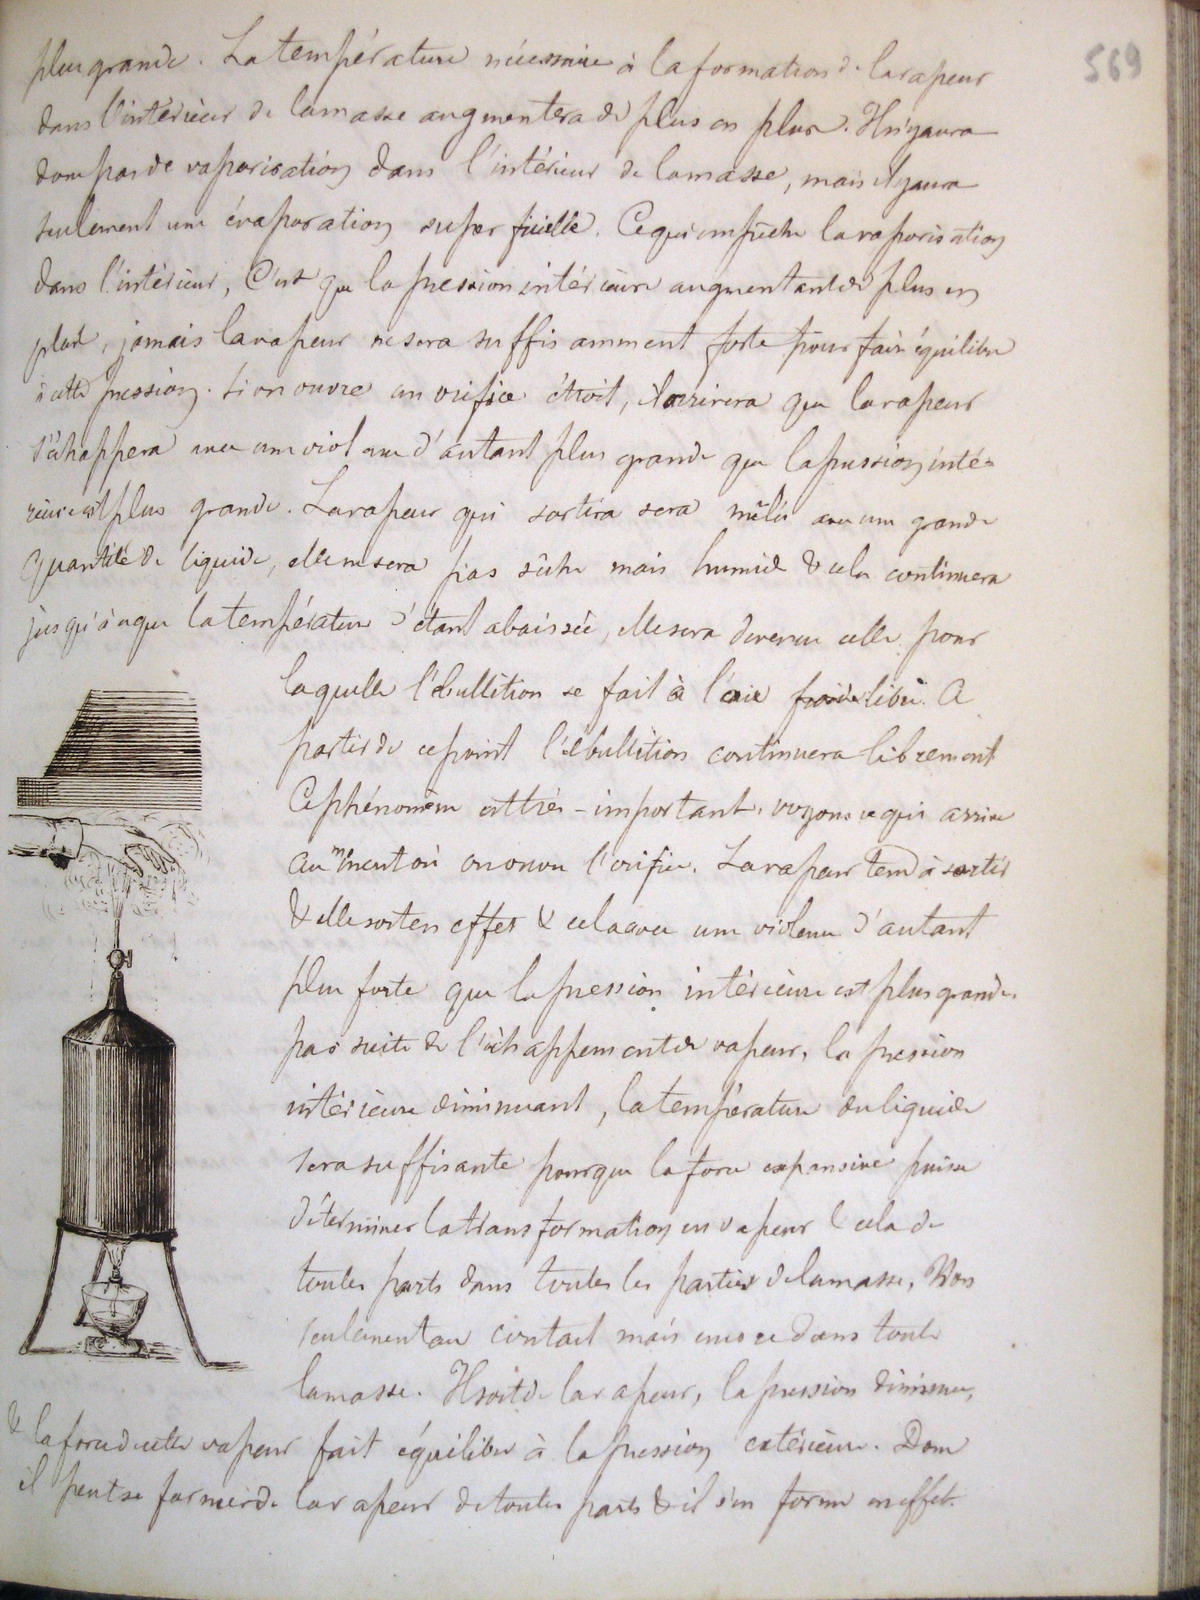 569
plus grande. La température nécessaire à la formation de la vapeur
dans l'intérieur de la masse augmentera de plus en plus. Il n'y aura
donc pas de vaporisation dans l'intérieur de la masse, mais il y aura
seulement une évaporation superficielle. Ce qui empêche la vaporisation
dans l'intérieur, C'est que la pression intérieure augmentant de plus en
plus, jamais la vapeur ne sera suffisamment forte pour faire équilibre
à cette pression. Si on ouvre un orifice étroit, il arrivera que la vapeur
s'échappera avec une violence d'autant plus grande que la pression inté=
rieure est plus grande. La vapeur qui sortira sera mêlée avec une grande
quantité de liquide, elle ne sera pas sèche mais humide & cela continuera
jusqu'à ce que la température s'étant abaissée, elle sera devenue celle pour
laquelle l'ébullition se fait à l'air libre. A
partir de ce point l'ébullition continuera librement
Ce phénomène est très-important. voyons ce qui arrive
au moment où on ouvre l'orifice. La vapeur tend à sortir
& elle sort en effet & cela avec une violence d'autant
plus forte que la pression intérieure est plus grande.
par suite de l'échappement de vapeur, la pression
intérieure diminuant, la température du liquide
sera suffisante pour que la force expansive puisse
déterminer la transformation en vapeur & cela de
toutes parts dans toutes les parties de la masse, Non
seulement au contact mais encore dans toute
la masse. Il sort de la vapeur, la pression diminue,
& la force de cette vapeur fait équilibre à la pression extérieure. Donc
il peut se former de la vapeur de toutes parts & il s'en forme en effet.